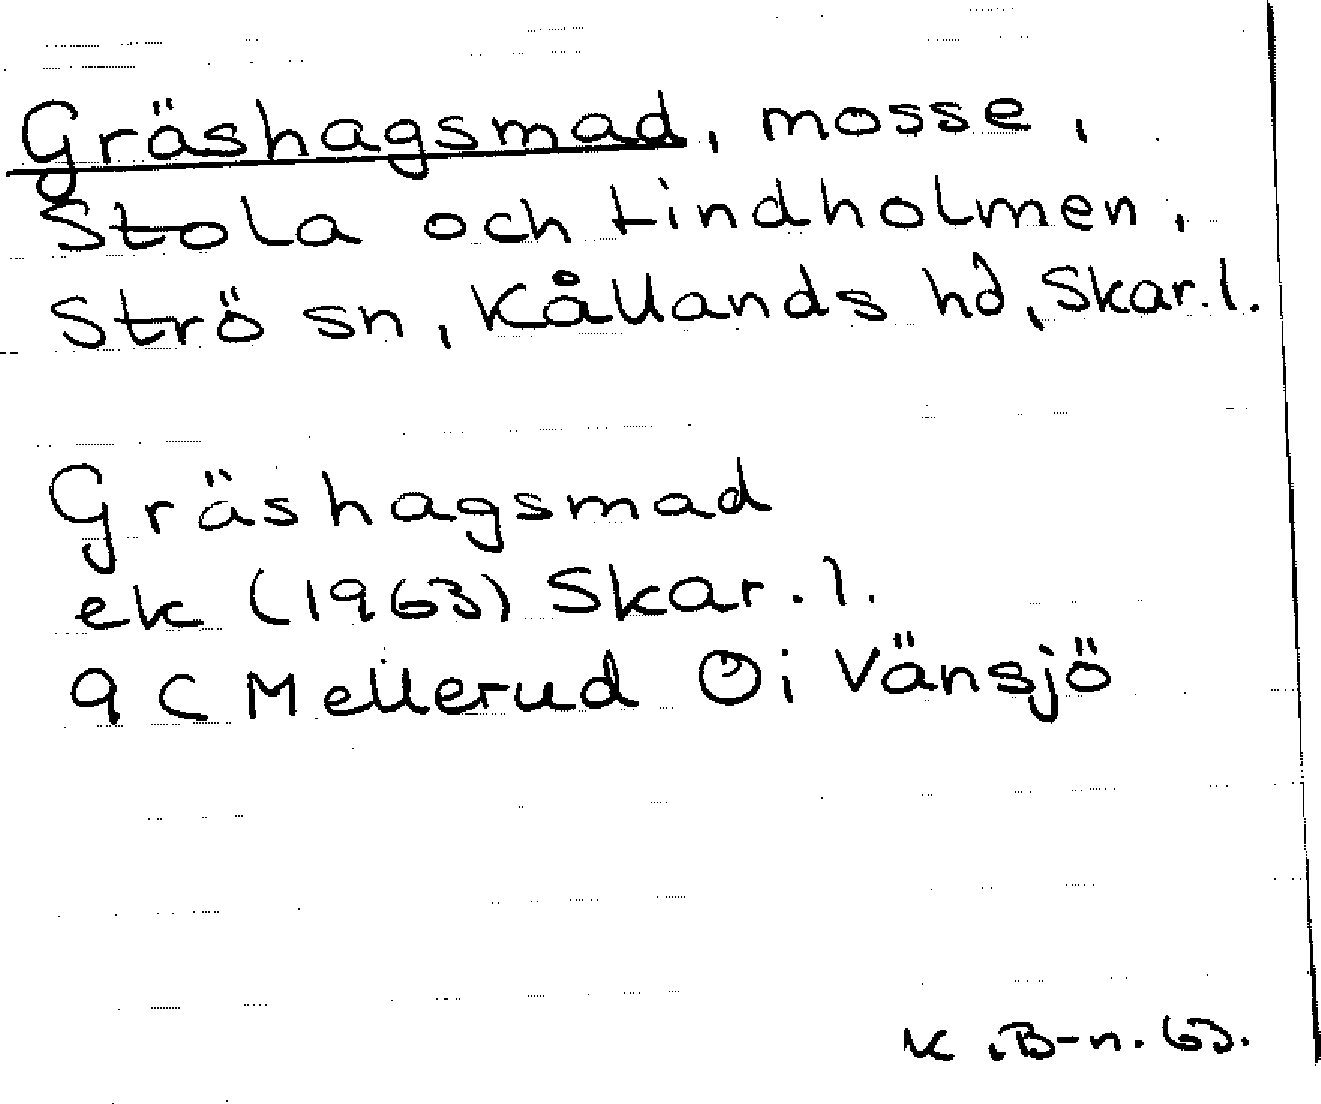 Gräshagsmad, mosse,
Stola och Lindholmen,
Strö sn, Kållands hd, Skar.l.
Gräshagsmad
ek (1963) Skar.l.
9C Mellerud Öi Vänsjö
K.B-n. 63.